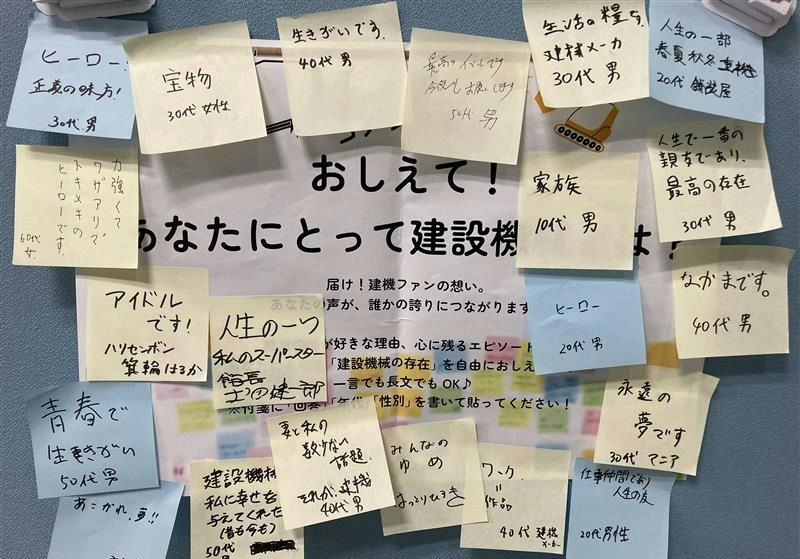 ヒーロー!
正義の味方!
30代 男
宝物
30代 女性
生きがいです。
40代 男
最高の
50代 男
生活の糧です
建械メーカ
30代 男
人生の一部
春夏秋冬建機
20代
力強くて
ワザアリで、
トキメキの
ヒーローです。
60代
女
おしえて!
あなたにとって建設機
は?
家族
10代 男
人生で一番の
親友であり、
最高の存在
30代 男
届け!建機ファンの想い。
あなたの声が、誰かの誇りにつながります
アイドル
です!
ハリセンボン
箕輪はるか
人生の一つ
私のスーパースター
館長
ヒーロー
20代 男
なかまです。
40代 男
が好きな理由、心に残るエピソード
「建設機械の存在」を自由におしえ
一言でも長文でもOK♪
※付箋に「回答」「年代」「性別」を書いて貼ってください!
青春で
生きがい
50代 男
妻と私の
数少ない
話題。
それが、建機
40代男
みんなの
ゆめ
永遠の
夢です
30代 マニア
あこがれ、
建設機械
私に幸せを
与えてくれた
(昔も今も)
50代
ワーク
作品
40代 建機
メーカー
仕事仲間であり
人生の友
20代男性